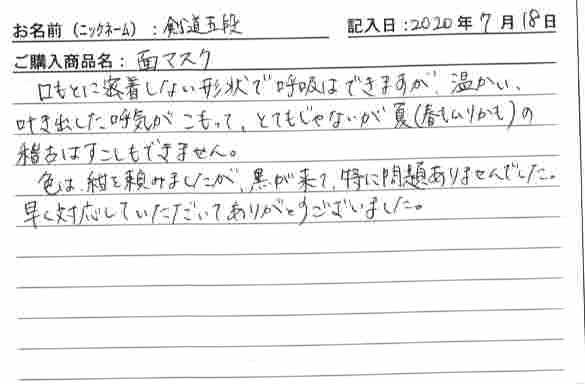 お名前（ニックネーム）：剣道五段　記入日：2020年7月18日
ご購入商品名：面マスク
口もとに密着しない形状で呼吸はできますが、温かい、
吐き出した呼気がこもって、とてもじゃないが夏(春もムリかも)の
稽古はすこしもできません。
色は、紺を頼みましたが、黒が来て、特に問題ありませんでした。
早く対応していただいてありがとうございました。